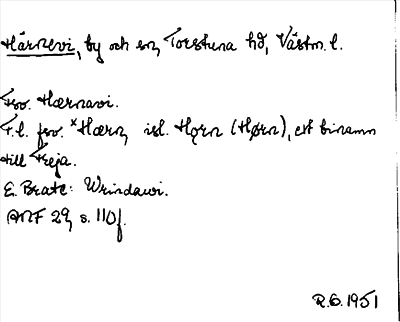 Härnevi, by och sn, Torstuna hd, Västm. l.
Fsv. Hærnavi.
F.l. fsv. *Hærn, isl. Hǫrn (Hørn), ett binamn
till Freja.
E. Brate: Wrindawi.
ANF 29, s. 110f.
R.G. 1951